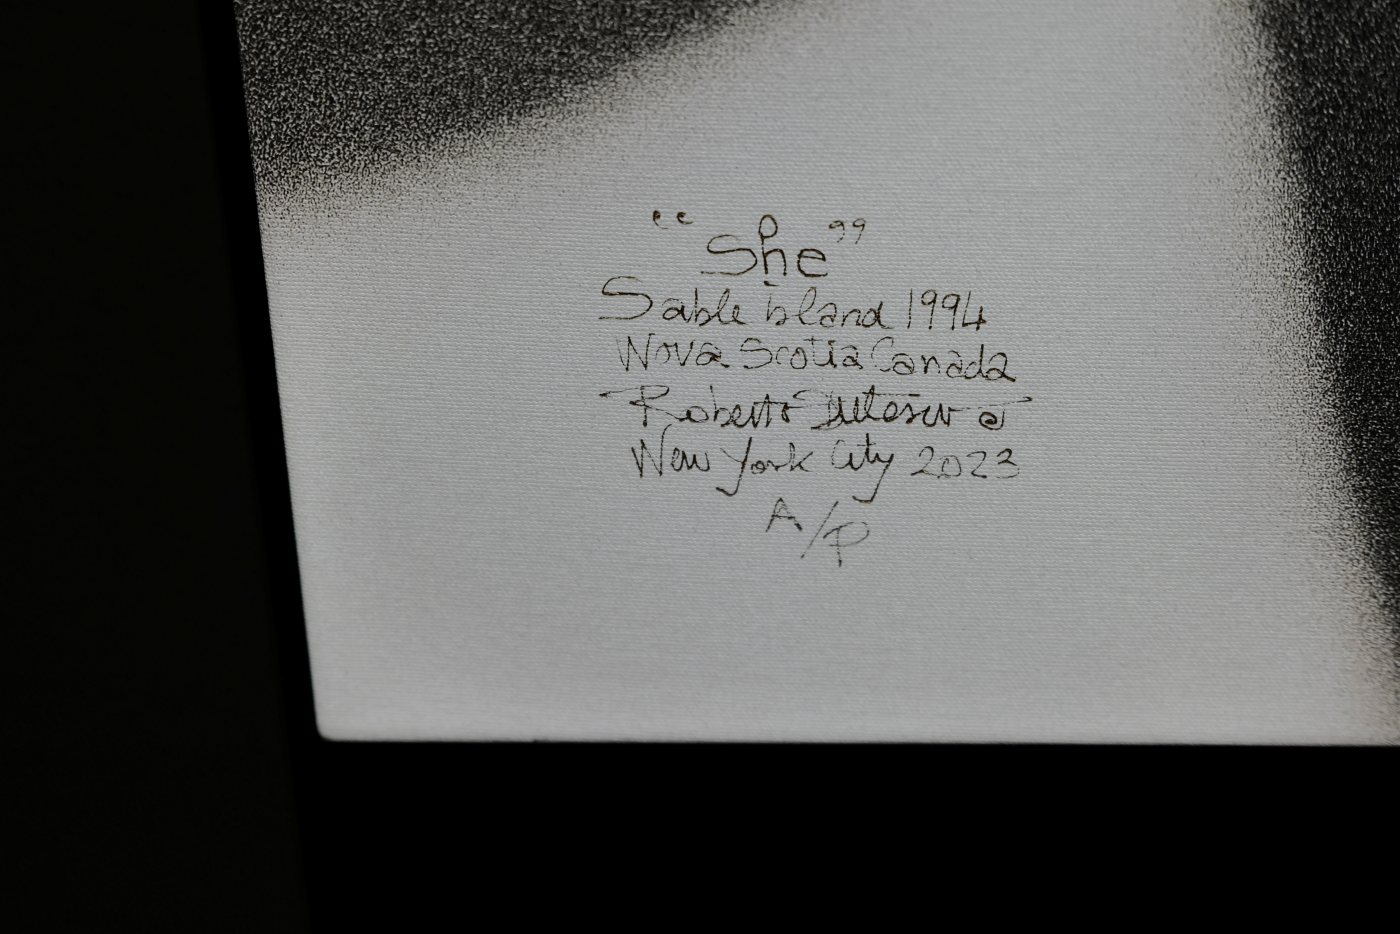 “She”
Sable Island 1994
Nova Scotia Canada
Roberto Dutesco
New York City 2023
A/P